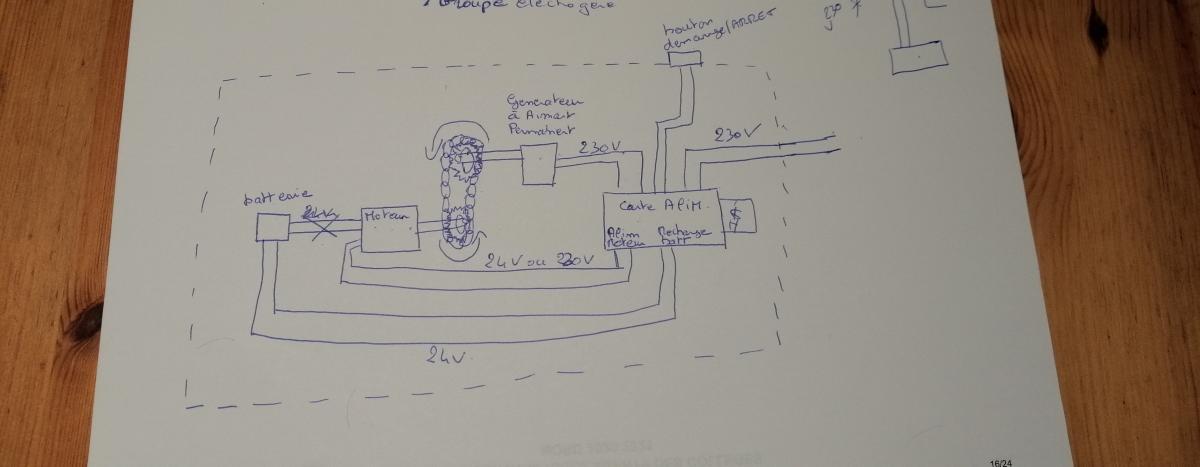 Groupe électrogène
bouton
demarrage/ARRET
Generateur
à Aimant
Permanent
230V
230V
batterie
24V
Moteur
Carte Alim.
Alim Recharge
Moteur batt
24V ou 230V
24V
16/24